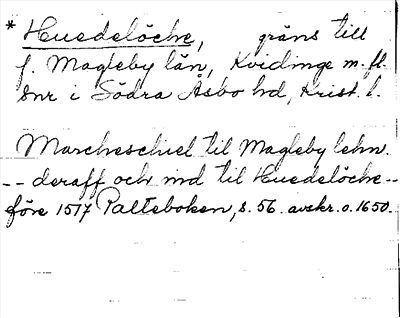 * Huedelöcke, gräns till
f. Magleby län, Kvidinge m. fl.
snr i Södra Åsbo hd, Krist. l.
Marcheschiel til Magleby lehn.
-- deraff och ind til Huedelöche --
före 1517 Palteboken, s. 56. avskr. o. 1650.